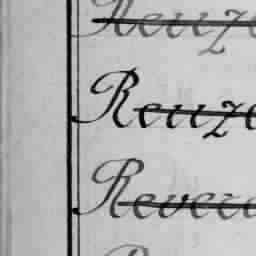 Reuze
Reuze
Revere